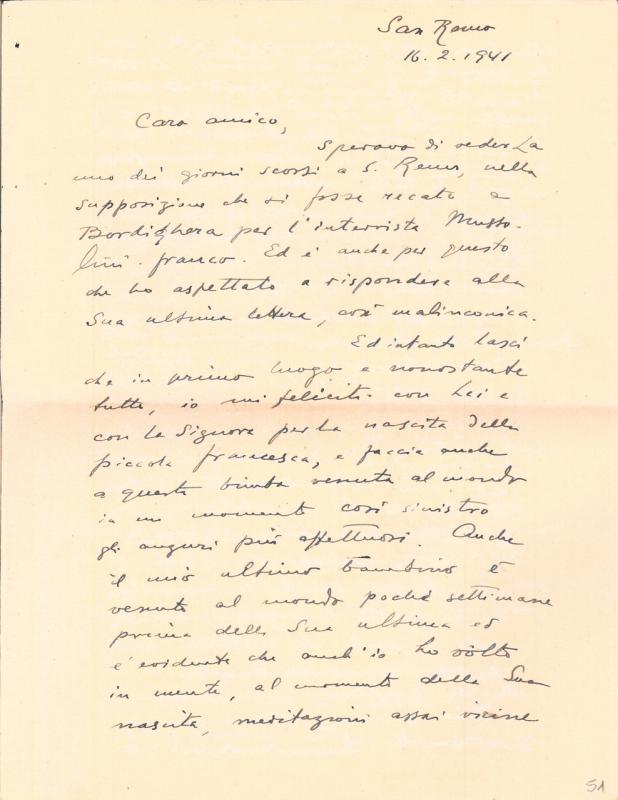 San Remo
16.2.1941
Caro amico,
Speravo di vederLa
uno dei giorni scorsi a S. Remo, nella
supposizione che si fosse recato a
Bordighera per l'intervista Musso-
lini-Franco. Ed è anche per questo
che ho aspettato a rispondere alla
Sua ultima lettera, così malinconica.
Ed intanto lasci
che in primo luogo e nonostante
tutto, io mi feliciti con Lei e
con la Signora per la nascita della
piccola Francesca, e faccia anche
a questa bimba venuta al mondo
in un momento così sinistro
gli auguri più affettuosi. Anche
il mio ultimo bambino è
venuto al mondo poche settimane
prima della Sua ultima ed
è evidente che anch'io ho volto
in mente, al momento della Sua
nascita, meditazioni assai vicine
51